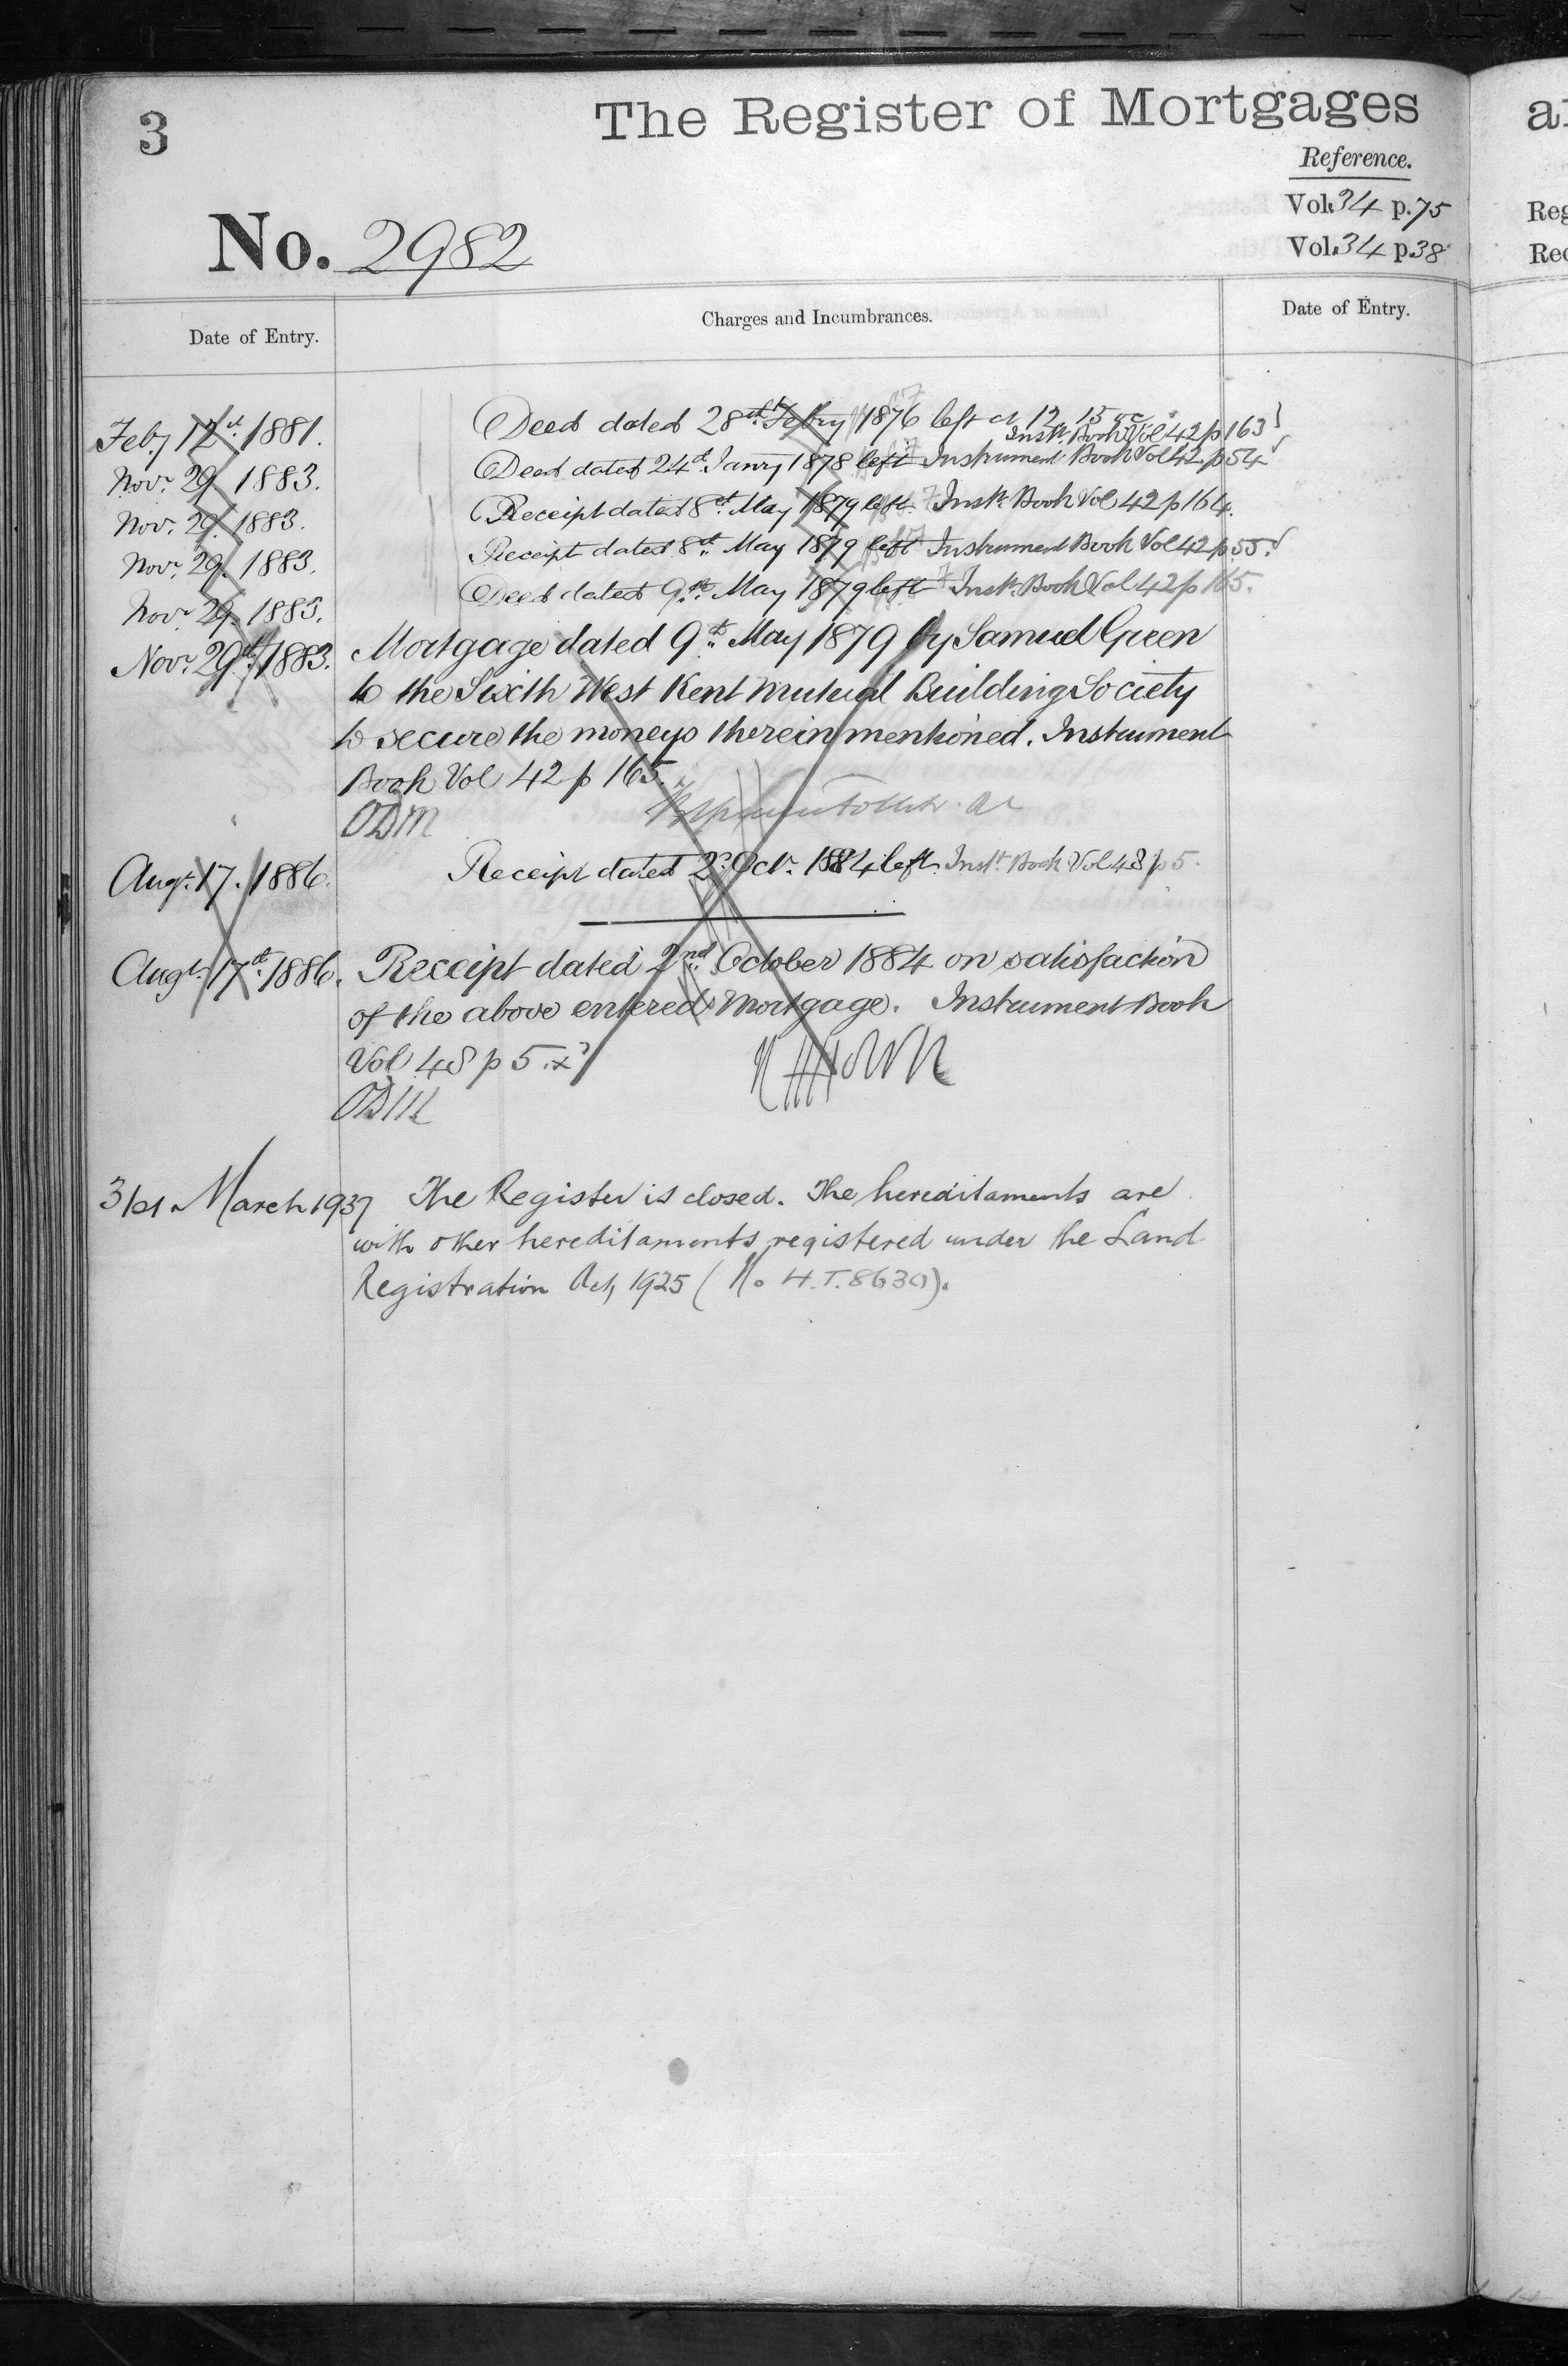 3
The Register of Mortgages
Reference.
Vol. 34 p. 75
No. 2982
Vol. 34 p. 38
Date of Entry.
Charges and Incumbrances.
Date of Entry.
Feby 12th. 1881.
Deed dated 28th. Febry 1876 left at 12.15
Instt. Book Vol 42 p 163
Novr. 29 1883.
Deed dated 24th. Janry 1878 left Instrument Book Vol 42 p 54
Novr. 29. 1883.
Receipt dated 8th. May 1879 left. Instt. Book Vol 42 p 164.
Novr. 29. 1883.
Receipt dated 8th. May 1879 left Instrument Book Vol 42 p 55.
Novr. 29. 1883.
Deed dated 9th. May 1879 left Instt. Book Vol 42 p 165.
Novr. 29th. 1883.
Mortgage dated 9th. May 1879 by Samuel Green
to the Sixth West Kent Mutual Building Society
to secure the moneys therein mentioned. Instrument
Book Vol 42 p 165.
ODM
Augt. 17. 1886.
Receipt dated 2d. Octr. 1884 left. Instt. Book Vol 48 p 5.
Augt. 17th. 1886.
Receipt dated 2nd. October 1884 on satisfaction
of the above entered Mortgage. Instrument Book
Vol 48 p 5.
ODM
31st March 1937
The Register is closed. The hereditaments are
with other hereditaments registered under the Land
Registration Act, 1925 (No H.T. 8630).
a
Reg
Rec